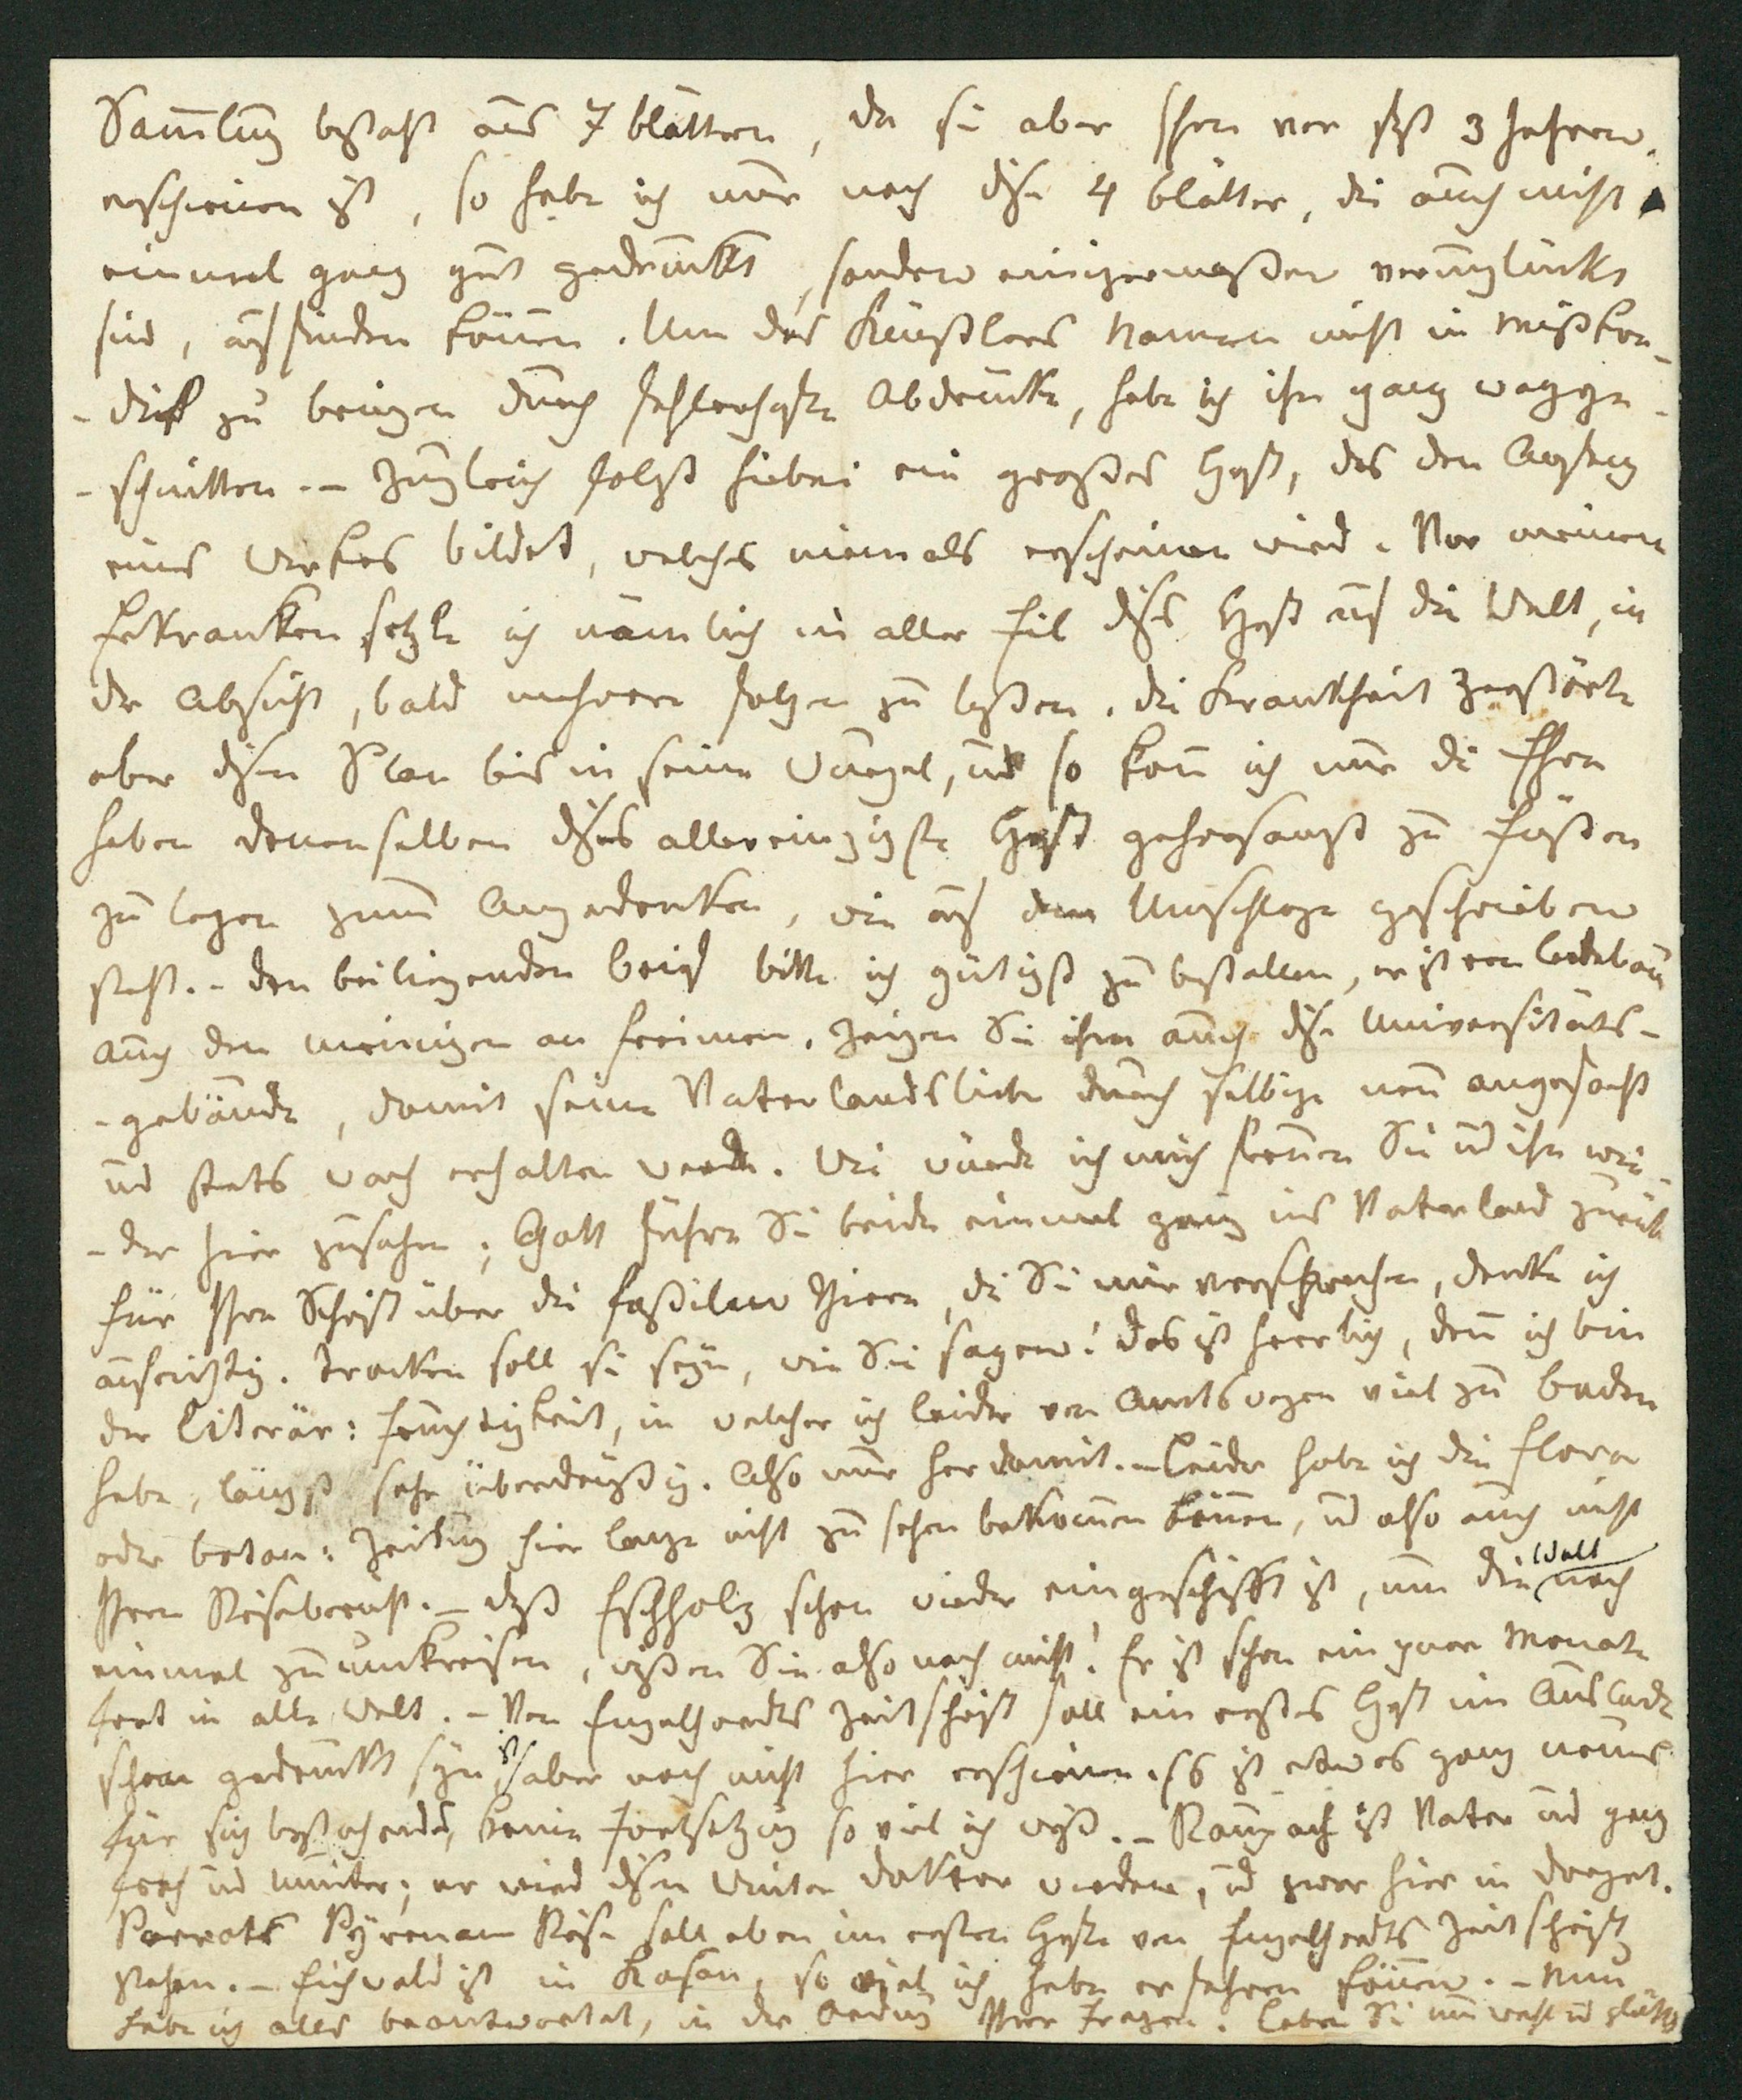 Sammlung besteht aus 7 blättern, da sie aber schon vor fast 3 Jahren
erschienen ist, so habe ich nur noch diese 4 blätter, die auch nicht
einmal ganz gut gedruckt, sondern einigermaßen verunglückt
sind, auffinden können. Um des Künstlers Namen nicht in Misskre-
-dit zu bringen durch fehlerhafte Abdrücke, habe ich ihn ganz wegge-
-schnitten. – Zugleich folgt hiebei ein großes Heft, das den Anfang
eines Werkes bildet, welches niemals erscheinen wird. Vor meinem
Erkranken setzte ich nämlich in aller Eil dises Heft auf die Welt, in
der Absicht, bald mehrere folgen zu laßen. die Krankheit zerstörte
aber disen Plan bis in seine Wurzel, und so kann ich nur die Ehre
haben denenselben dises allereinzigste Heft gehorsamst zu Füßen
zu legen zum Angedenken, wie auf dem Umschlage geschrieben
steht. – den beiliegenden brief bitte ich gütigst zu bestellen, er ist von Ledebour
auch den meinigen an freimen. Zeigen Sie ihm auch dise Universitäts-
-gebäude, damit seine Vaterlandsliebe durch selbige neu angefacht
und stets wach erhalten werde. Wie würde ich mich freuen Sie und ihn wie-
-der hier zusehen; Gott führe Sie beide einmal ganz ins Vaterland zurück
für Ihre Schrift über die foßilen Thiere, die Sie mir versprechen, danke ich
aufrichtig. trocken soll sie seyn, wie Sie sagen! das ist herrlich, denn ich bin
der Literär: feuchtigkeit, in welcher ich leider von Amtswegen viel zu baden
habe, längst sehr überdrüßig. Also nur her damit. – Leider habe ich die flora
oder botan: Zeitung hier lange nicht zu sehen bekommen können, und also auch nicht
Ihren Reisebericht. – daß Eschholz schon wieder eingeschifft ist, um die Welt noch
einmal zu umkreisen, wißen Sie also noch nicht! Er ist schon ein paar Monate
fort in alle Welt. – Von Engelhardts Zeitschrift soll ein erstes Heft im Auslande
schon gedruckt seyn, ist aber noch nicht hier erschienen. Es ist etwas ganz neues
für sich bestehendes, keine Fortsetzung so viel ich weiß. – Raupach ist Vater und ganz
froh und munter; er wird disen Winter doktor werden, und zwar hier in Dorpat.
Parrots Pyrenäen Reise soll eben im ersten Hefte von Engelhardts Zeitschrift
stehen. – Eichwald ist in Kasan, so viel ich habe erfahren können. – Nun
habe ich alles beantwortet, in der Ordnung Ihrer Fragen. Leben Sie nun wohl und glückl